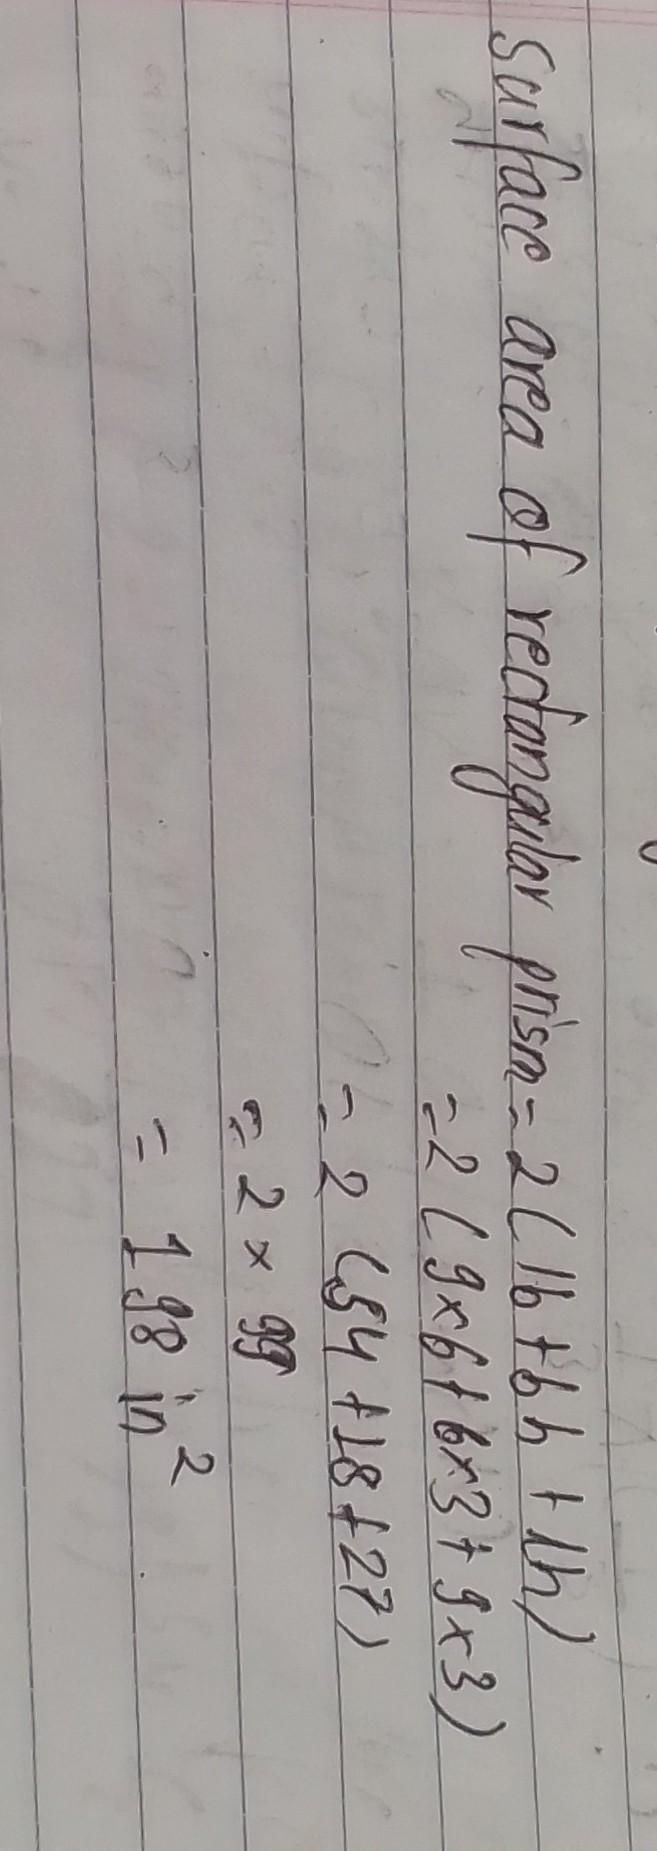 Surface area of rectangular prism = 2 (lb + bh + lh)
= 2 (9 x 6 + 6 x 3 + 9 x 3)
= 2 (54 + 18 + 27)
= 2 x 99
= 198 in²